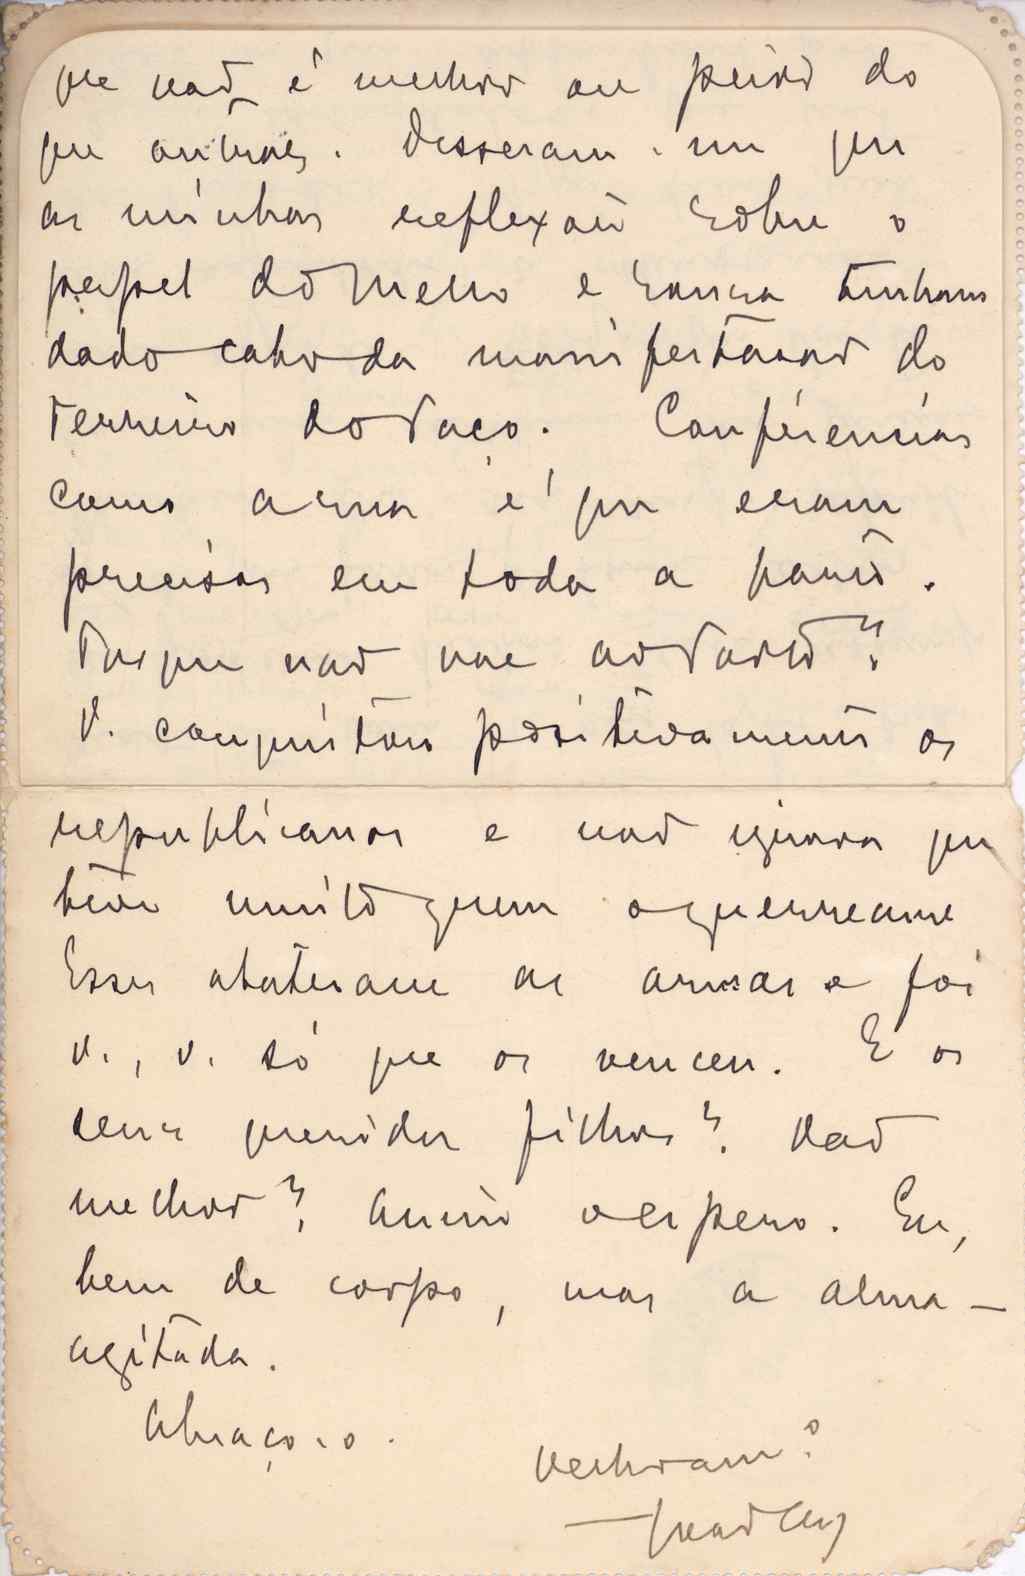 que não é melhor ou peior do
que outros. Disseram-me que
as minhas reflexões sobre o
papel do Mello e Sousa tinham
dado cabo da manifestação do
Terreiro do Paço. Conferencias
como a sua é que eram
precisas em toda a parte.
Porque não vae ao Porto?
V. conquistou positivamente os
republicanos e não ignora que
teve muito quem o guerreasse
Esses abateram as armas e foi
V., V. só que os venceu. E os
seus queridos filhos? Vão
melhor? Assim o espero. Eu,
bem de corpo, mas a alma —
agitada.
Abraço-o.
João